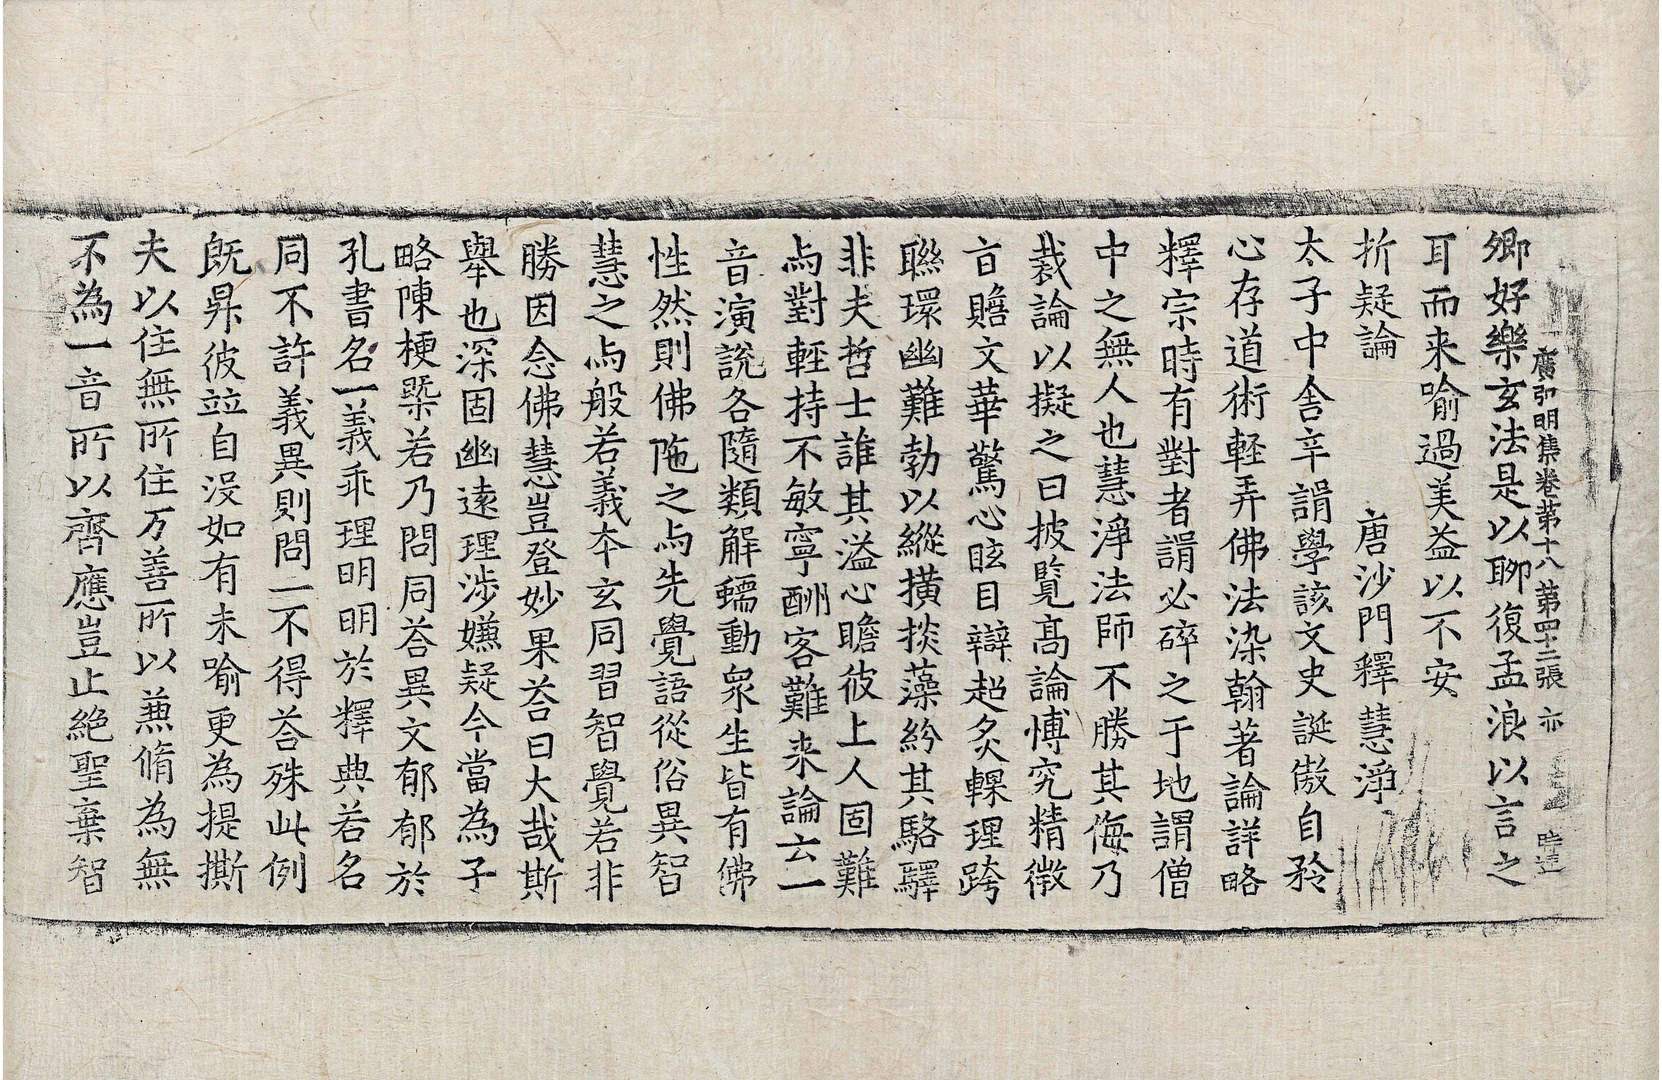 廣弘明集卷苐十八 苐四十二張 亦
卿好樂玄法是以聊復孟浪以言之
耳而来喻過美益以不安
折疑論 唐沙門釋慧淨
太子中舎辛諝學該文史誕傲自矜
心存道術軽弄佛法染翰著論詳略
釋宗時有對者諝必碎之于地謂僧
中之無人也慧淨法師不勝其侮乃
裁論以擬之曰披覧髙論愽究精微
旨贍文華驚心眩目辯超炙輠理跨
聯環幽難勃以縱橫掞藻紛其駱驛
非夫哲士誰其溢心瞻彼上人固難
与對軽持不敏寧酬客難来論云一
音演說各隨類解蠕動衆生皆有佛
性然則佛陁之与先覺語從俗異智
慧之与般若義夲玄同習智覺若非
勝因念佛慧豈登妙果荅曰大哉斯
舉也深固幽遠理涉嫌疑今當為子
略陳梗槩若乃問同荅異文郁郁於
孔書名一義乖理明明於釋典若名
同不許義異則問一不得荅殊此例
旣昇彼竝自没如有未喻更為提撕
夫以住無所住万善所以兼脩為無
不為一音所以齊應豈止絶聖棄智